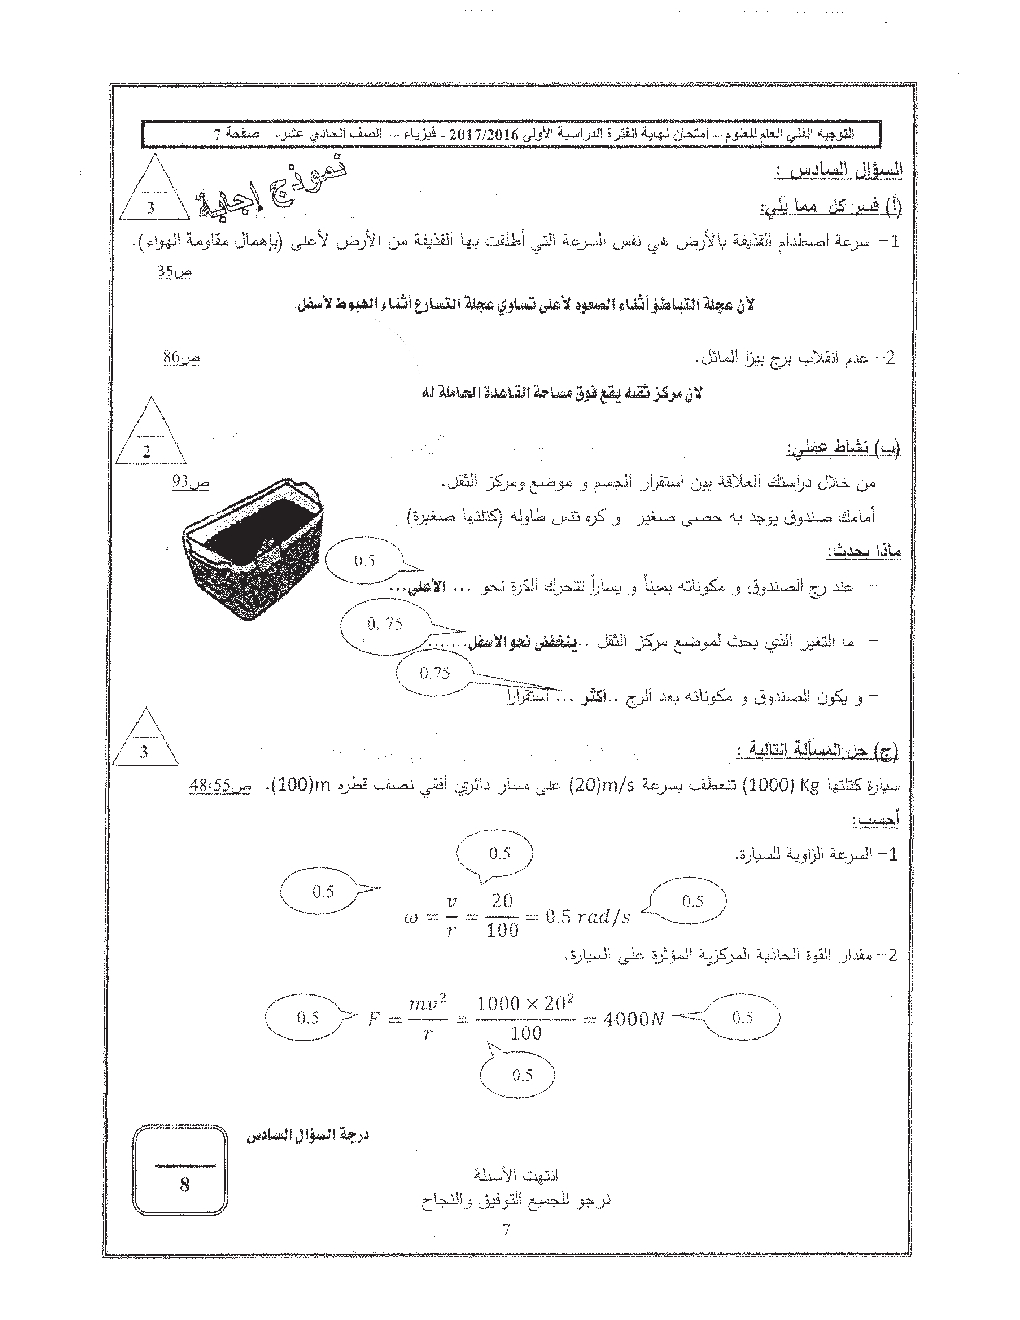 التوجيه الفني العام للعلوم – امتحان نهاية الفترة الدراسية الأولى 2017/2016 - فيزياء – الصف الحادي عشر. صفحة 7
نموذج إجابة
السؤال السادس :
3
(أ) فسر كل مما يلي:
1– سرعة اصطدام القذيفة بالأرض هي نفس السرعة التي أطلقت بها القذيفة من الأرض لأعلى (بإهمال مقاومة الهواء).
ص35
لأن عجلة التباطؤ أثناء الصعود لأعلى تساوي عجلة التسارع أثناء الهبوط لأسفل
2– عدم انقلاب برج بيزا المائل. ص86
لأن مركز ثقله يقع فوق مساحة القاعدة الحاملة له
2
(ب) نشاط عملي:
من خلال دراستك العلاقة بين استقرار الجسم و موضع ومركز الثقل. ص93
أمامك صندوق يوجد به حصى صغير و كرة تنس طاولة (كتلتها صغيرة)
ماذا يحدث:
0.5
– عند رج الصندوق و مكوناته يميناً و يساراً تتحرك الكرة نحو ... الأعلى...
0.75
– ما التغير الذي يحث لموضع مركز الثقل ..ينخفض نحو الأسفل.......
0.75
– و يكون الصندوق و مكوناته بعد الرج ..اكثر ... استقرارا
3
(ج) حل المسألة التالية :
سيارة كتلتها Kg (1000) تنعطف بسرعة m/s(20) على مسار دائري أفقي نصف قطره m(100). ص48:55
أحسب:
1– السرعة الزاوية للسيارة.
0.5
0.5
0.5
ω = v/r = 20/100 = 0.5 rad/s
2– مقدار القوة الجاذبة المركزية المؤثرة على السيارة.
0.5
F = mv²/r = 1000 × 20²/100 = 4000N
0.5
0.5
درجة السؤال السادس
8
انتهت الأسئلة
نرجو للجميع التوفيق والنجاح
7